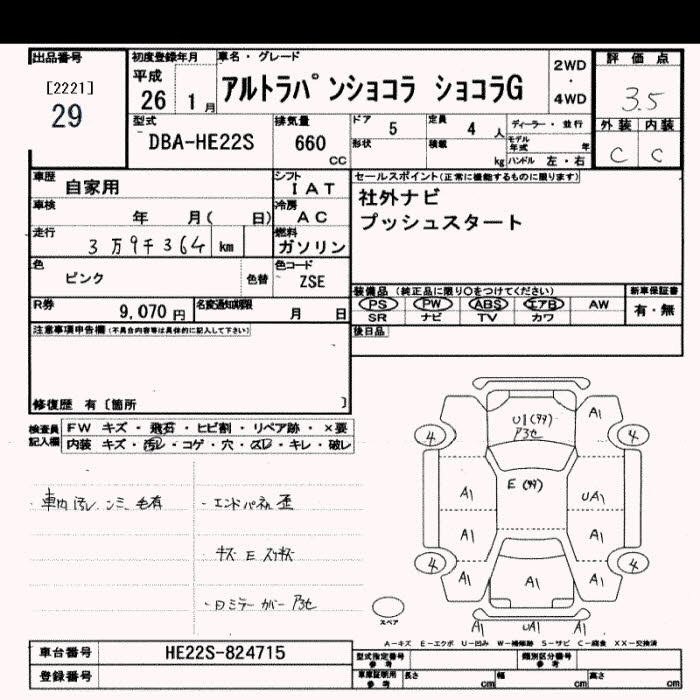 出品番号
[2221]
29
初度登録年月
平成
26 1 月
車名・グレード
アルトラパンショコラ ショコラG
2WD
・
4WD
評価点
3.5
外装 内装
C C
型式
DBA-HE22S
排気量
660
CC
ドア 5
定員 4 人
形状
積載 kg
ディーラー・並行
モデル年式 年
ハンドル 左・右
車歴 自家用
シフト IAT
車検 年 月( 日)
冷房 AC
走行 3万9千364 km
燃料 ガソリン
色 ピンク 色替
色コード ZSE
R券 9,070円
名変通知期限 月 日
セールスポイント(正常に機能するものに限ります)
社外ナビ
プッシュスタート
装備品 (純正品に限り○をつけてください)
PS PW ABS エアB AW
SR ナビ TV カワ
新車保証書
有・無
後日品
注意事項申告欄(不具合内容等は具体的に記入して下さい)
修復歴 有〔箇所 〕
検査員記入欄
FW キズ・飛石・ヒビ割・リペア跡・×要
内装 キズ・汚レ・コゲ・穴・スレ・キレ・破レ
・車内汚レ シミ 毛有
・エンドパネル歪
・キズ E スリキズ
・ロミラーカバーアセ
U1(タタ)
アセ
A1
4
4
E(タタ)
A1
UA1
A1
A1
4
4
A1
A1
A1
スペア
A1 UA1 A1
A−キズ E−エクボ U−凹み W−補修跡 S−サビ C−腐食 XX−交換済
車台番号 HE22S-824715
登録番号
型式指定番号 参考
類別区分番号 参考
車庫証明用 参考
長さ cm
幅 cm
高さ cm